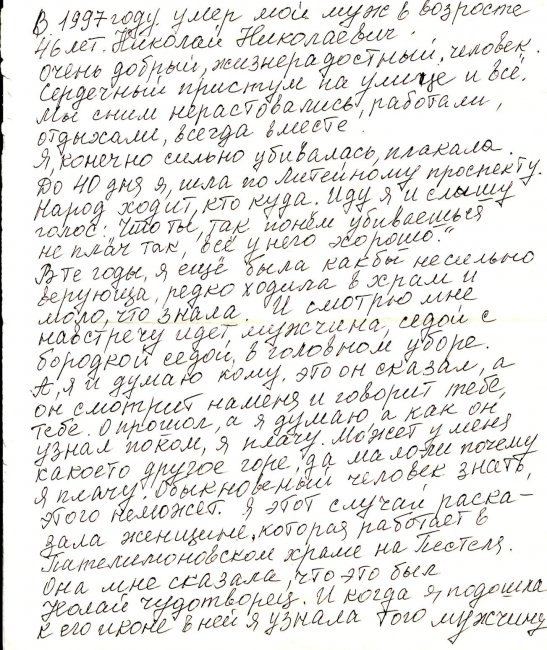 В 1997 году умер мой муж в возросте
46 лет. Николай Николаевич.
Очень добрый, жизнерадостный, человек.
Сердечный приступ на улице и всё.
Мы с ним нерастовались, работали,
отдыхали, всегда вместе.
Я, конечно сильно убивалась, плакала.
До 40 дня я, шла по Литейному проспекту.
Народ ходит, кто куда. Иду я и слышу
голос: „Что ты, так понём убиваешься
не плач так, всё у него хорошо."
В те годы, я ещё была какбы несильно
верующа, редко ходила в храм и
мало, что знала. И смотрю мне
навстречу идет, мужчина, седой с
бородкой седой, в головном уборе.
А, я и думаю кому, это он сказал, а
он смотрит на меня и говорит тебе,
тебе. О прошол, а я думаю а как он
узнал поком, я плачу. Может у меня
какоето другое горе, да малоли почему
я плачу. Обыкновеный человек знать,
этого неможет. Я этот случай раска-
зала женщине, которая работает в
Пателимоновском храме на Пестеля.
Она мне сказала, что это был
Николай чудотворец. И когда я, подошла
к его иконе в ней я узнала того мужчину